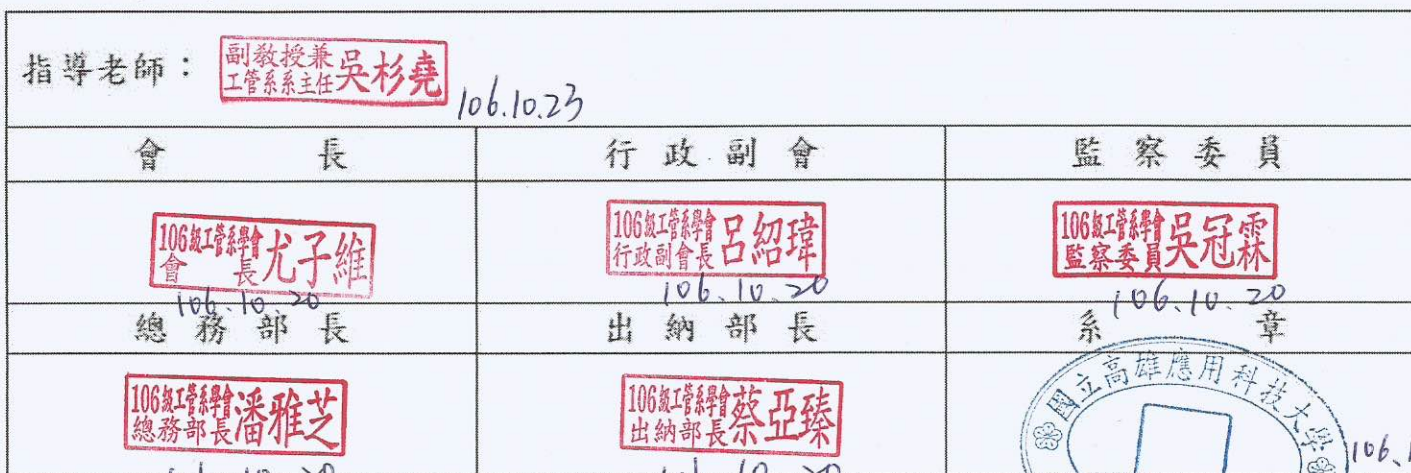 指導老師：
副教授兼
工管系系主任 吳杉堯
106.10.23
會長 行政副會 監察委員
106級工管系學會
會長 尤子維
106.10.20
106級工管系學會
行政副會長 呂紹瑋
106.10.20
106級工管系學會
監察委員 吳冠霖
106.10.20
總務部長 出納部長 系章
106級工管系學會
總務部長 潘雅芝
106級工管系學會
出納部長 蔡亞臻
國立高雄應用科技大學
106.